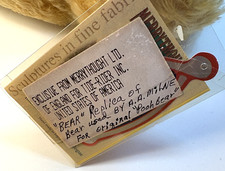 Sculptures in fine fabric
MERRYTHOUGHT
EXCLUSIVE FROM MERRYTHOUGHT LTD.
OF ENGLAND FOR TIDE-RIDER INC.
UNITED STATES OF AMERICA
"BEAR" Replica of
Bear used by A.A. Milne
For original "Pooh Bear"